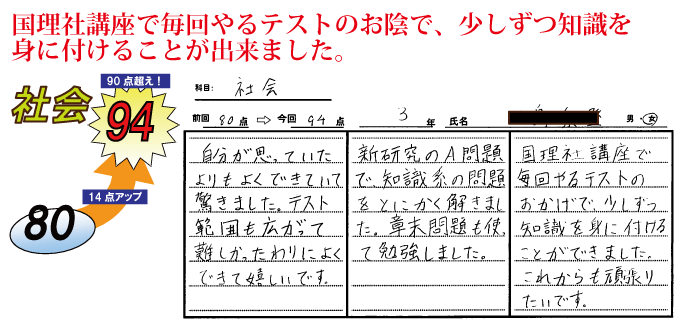 国理社講座で毎回やるテストのお陰で、少しずつ知識を
身に付けることが出来ました。
90点超え！
社会
94
14点アップ
80
科目: 社会
前回 80点 ⇨ 今回 94点 3年 氏名 男・女
自分が思っていた
よりもよくできていて
驚きました。テスト
範囲も広がって
難しかったわりによく
できて嬉しいです。
新研究のA問題
で、知識系の問題
をとにかく解きまし
た。章末問題も使っ
て勉強しました。
国理社講座で
毎回やるテストの
おかげで、少しずつ
知識を身に付ける
ことができました。
これからも頑張り
たいです。